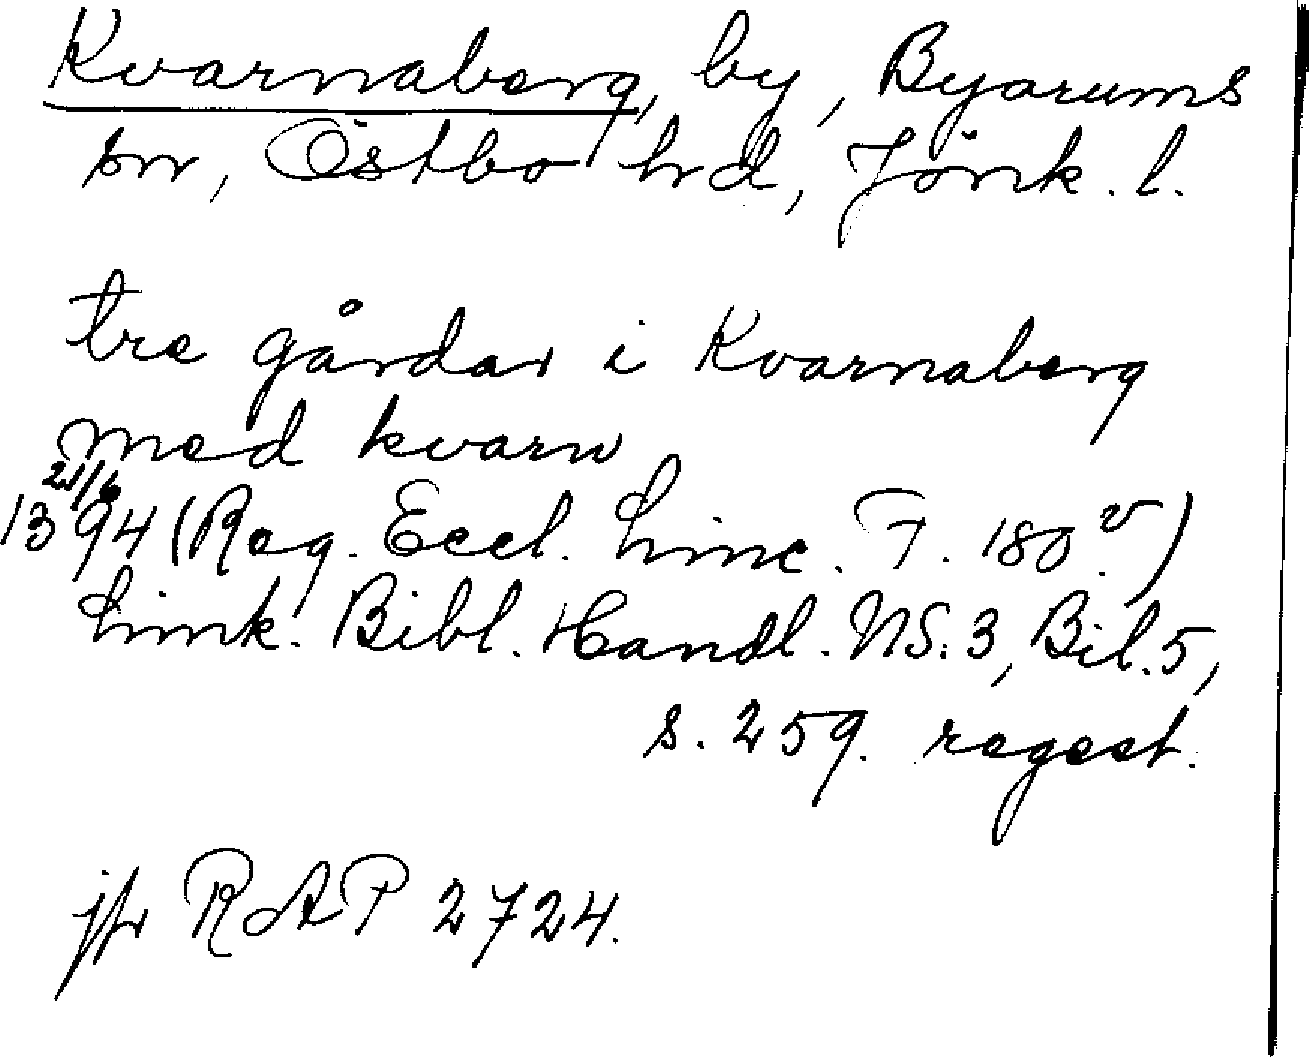 Kvarnaberg, by, Byarums
sn, Östbo hd, Jönk. l.
tre gårdar i Kvarnaberg
med kvarn
21/6
1394 (Reg. Eccl. Linc. F. 180 v)
Link. Bibl. Handl. NS. 3, Bil. 5,
s. 259. regest.
jfr RAP 2724.